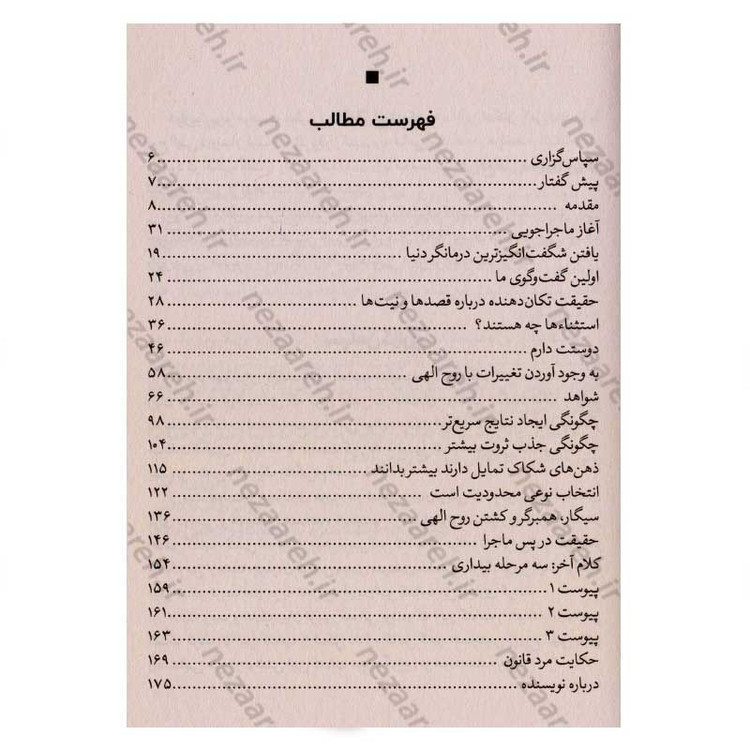 فهرست مطالب
سپاس‌گزاری ........ ۶
پیش گفتار ........ ۷
مقدمه ........ ۸
آغاز ماجراجویی ........ ۳۱
یافتن شگفت‌انگیزترین درمانگر دنیا ........ ۱۹
اولین گفت‌وگوی ما ........ ۲۴
حقیقت تکان‌دهنده درباره قصدها و نیت‌ها ........ ۲۸
استثناءها چه هستند؟ ........ ۳۶
دوستت دارم ........ ۴۶
به وجود آوردن تغییرات با روح الهی ........ ۵۸
شواهد ........ ۶۶
چگونگی ایجاد نتایج سریع‌تر ........ ۹۸
چگونگی جذب ثروت بیشتر ........ ۱۰۴
ذهن‌های شکاک تمایل دارند بیشتر بدانند ........ ۱۱۵
انتخاب نوعی محدودیت است ........ ۱۲۲
سیگار، همبرگر و کشتن روح الهی ........ ۱۳۶
حقیقت در پس ماجرا ........ ۱۴۶
کلام آخر: سه مرحله بیداری ........ ۱۵۴
پیوست ۱ ........ ۱۵۹
پیوست ۲ ........ ۱۶۱
پیوست ۳ ........ ۱۶۳
حکایت مرد قانون ........ ۱۶۹
درباره نویسنده ........ ۱۷۵
nezaareh.ir